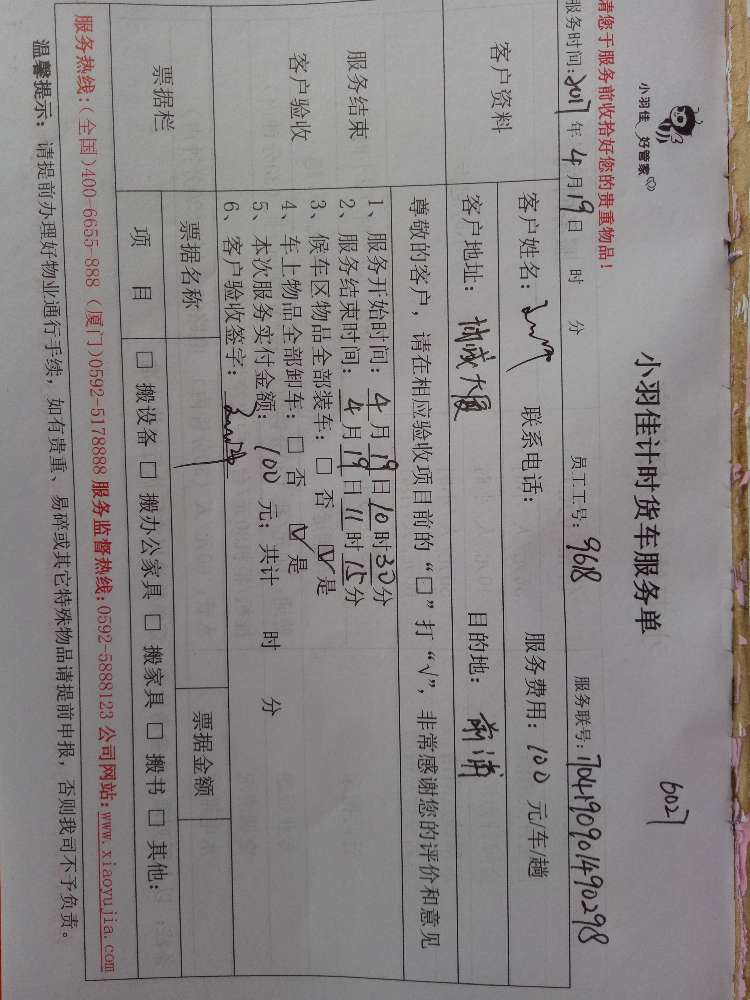 小羽佳 好管家
小羽佳计时货车服务单
6027
请您于服务前收拾好您的贵重物品！
服务时间：2017年4月19日 时 分 员工工号：9618 服务联号：1704190901490298
客户资料
客户姓名： 联系电话： 服务费用：100元/车/趟
客户地址： 大厦 目的地：前浦
服务结束
客户验收
尊敬的客户，请在相应验收项目前的“□”打“√”，非常感谢您的评价和意见
1、服务开始时间：4月19日10时30分
2、服务结束时间：4月19日11时15分
3、候车区物品全部装车：□ 否 ☑ 是
4、车上物品全部卸车：□ 否 ☑ 是
5、本次服务实付金额：100元；共计 时 分
6、客户验收签字：
票据栏
票据名称 票据金额
项 目 □ 搬设备 □ 搬办公家具 □ 搬家具 □ 搬书 □ 其他：
服务热线：(全国)400-6655-888 (厦门)0592-5178888 服务监督热线：0592-5888123 公司网站：www.xiaoyujia.com
温馨提示：请提前办理好物业通行手续，如有贵重、易碎或其它特殊物品请提前申报，否则我司不予负责。